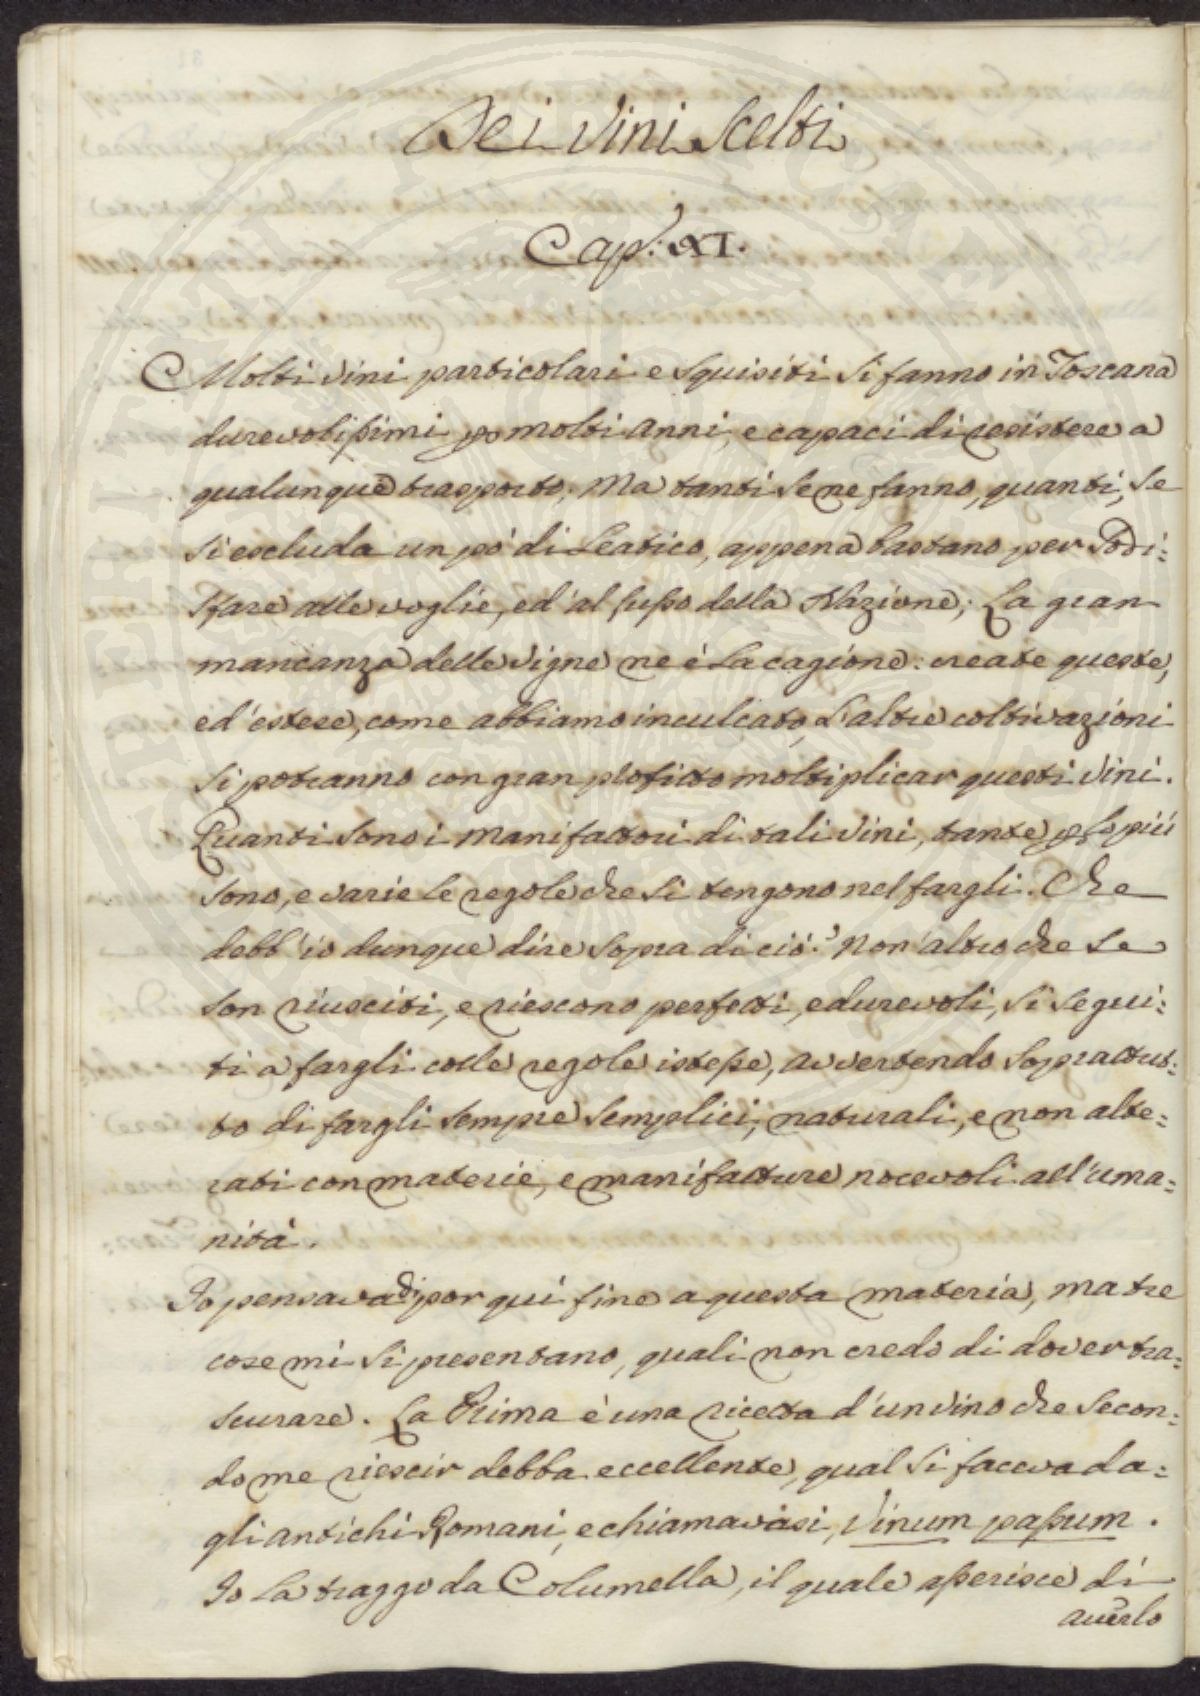 Dei Vini Scelti
Cap: XI.
Molti Vini particolari e squisiti si fanno in Toscana
durevolissimi p molti anni, e capaci di resistere a
qualunque trasporto; Ma tanti se ne fanno, quanti, se
si escluda un pò di Leatico, appena bastano per sodi=
sfare alle voglie, ed al lusso della Nazione; La gran
mancanza delle Vigne ne è la cagione: create queste,
ed estese, come abbiamo inculcato, L'altre coltivazioni
si potranno con gran profitto moltiplicar questi Vini.
Quanti sono i Manifattori di tali Vini, tante p lo più
sono, e varie le regole che si tengono nel fargli. Che
debb'io dunque dire sopra di ciò? Non altro che se
son riusciti, e riescono perfetti, e durevoli, si segui=
ti a fargli colle regole istesse, avvertendo soprattut=
to di fargli sempre semplici, naturali, e non alte=
rati con materie, e manifatture nocevoli all'uma=
nità.
Io pensava di por qui fine a questa materia, ma tre
cose mi si presentano, quali non credo di dover tra=
scurare. La Prima è una ricetta d'un Vino che secon=
do me riescir debba eccellente, qual si faceva da=
gli antichi Romani, e chiamavasi, Vinum passum.
Io la traggo da Columella, il quale asserisce di
averlo